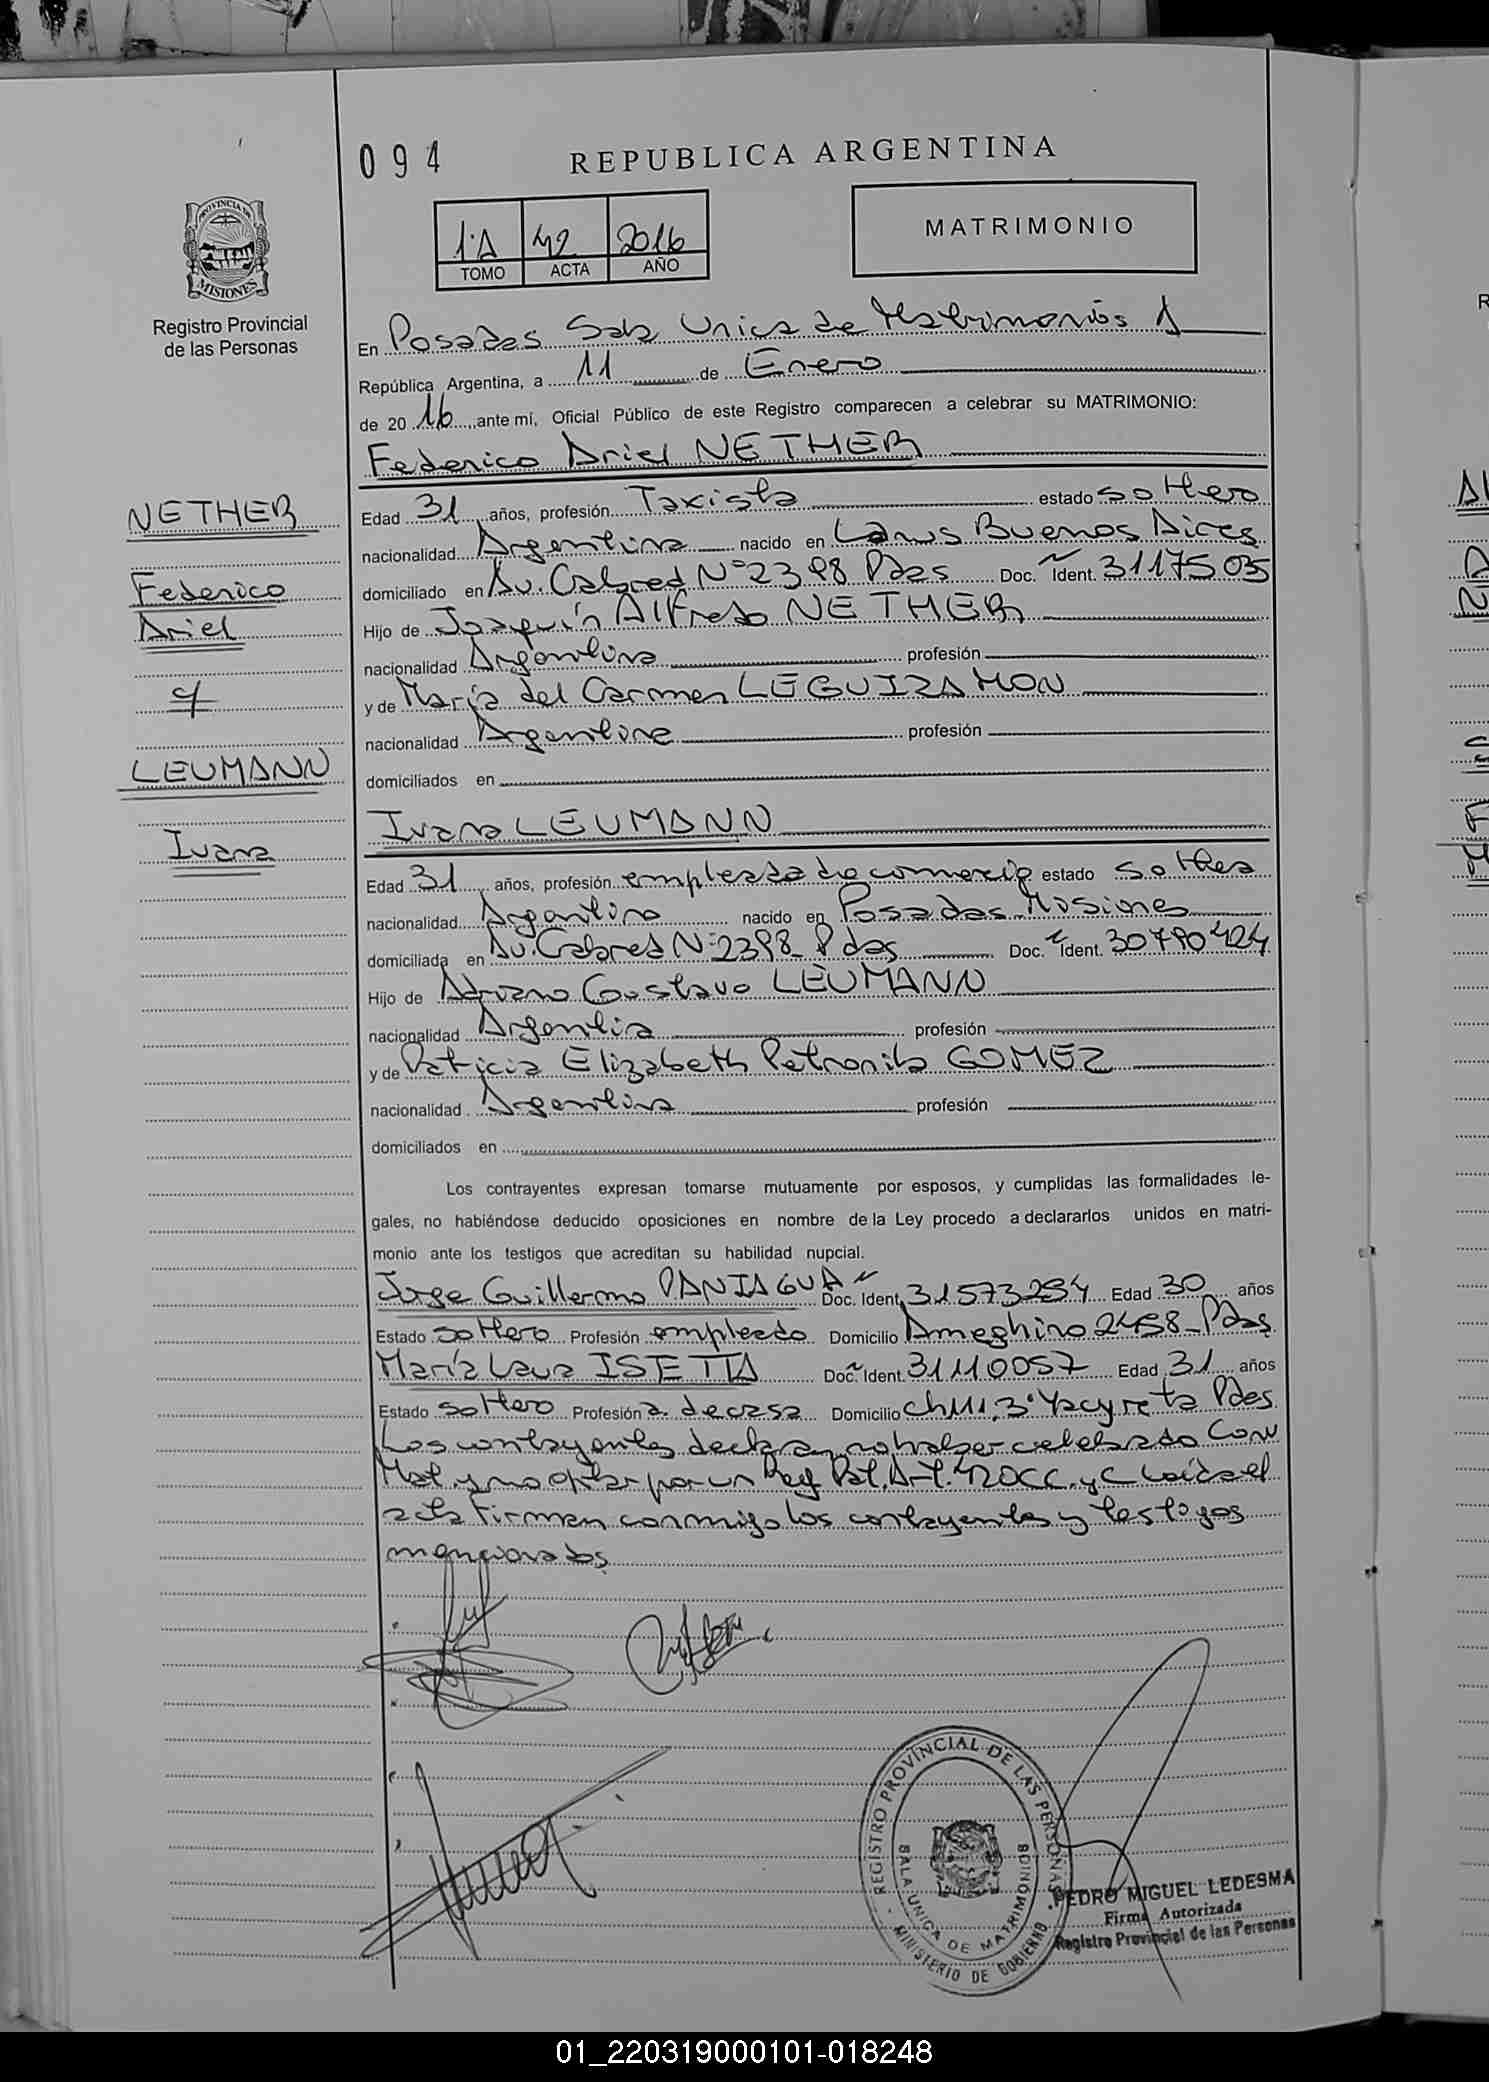 094
REPUBLICA ARGENTINA
PROVINCIA DE
MISIONES
Registro Provincial
de las Personas
1°A 42 2016
TOMO ACTA AÑO
MATRIMONIO
En Posadas Sala Unica de Matrimonios 1
República Argentina, a 11 de Enero
de 2016 ante mí, Oficial Público de este Registro comparecen a celebrar su MATRIMONIO:
Federico Ariel NETHER
NETHER
Federico
Ariel
c/
LEUMANN
Ivana
Edad 31 años, profesión Taxista estado soltero
nacionalidad Argentina nacido en Lanus Buenos Aires
domiciliado en Av. Cabred N°2398 Pdas Doc. Ident. 31175035
Hijo de Joaquín Alfredo NETHER
nacionalidad Argentina profesión
y de María del Carmen LEGUIZAMON
nacionalidad Argentina profesión
domiciliados en
Ivana LEUMANN
Edad 31 años, profesión empleada de comercio estado soltera
nacionalidad Argentina nacido en Posadas Misiones
domiciliada en Av. Cabred N°2398 Pdas Doc. Ident. 30790424
Hijo de Adriano Gustavo LEUMANN
nacionalidad Argentina profesión
y de Patricia Elizabeth Petronila GOMEZ
nacionalidad Argentina profesión
domiciliados en
Los contrayentes expresan tomarse mutuamente por esposos, y cumplidas las formalidades le-
gales, no habiéndose deducido oposiciones en nombre de la Ley procedo a declararlos unidos en matri-
monio ante los testigos que acreditan su habilidad nupcial.
Jorge Guillermo PANIAGUA Doc. Ident. 31573294 Edad 30 años
Estado soltero Profesión empleado Domicilio Ameghino 2458 Pdas
María Laura ISETTA Doc. Ident. 31110057 Edad 31 años
Estado soltero Profesión a. de casa Domicilio Ch 111, 3° Yacyreta Pdas
Los contrayentes declaran no haber celebrado Conv
Mat. y no optar por un Reg Pat. Art. 420 CC. y C Leída el
acta Firman conmigo los contrayentes y testigos
mencionados
REGISTRO PROVINCIAL DE LAS PERSONAS
SALA UNICA DE MATRIMONIOS
MINISTERIO DE GOBIERNO
PEDRO MIGUEL LEDESMA
Firma Autorizada
Registro Provincial de las Personas
01_220319000101-018248